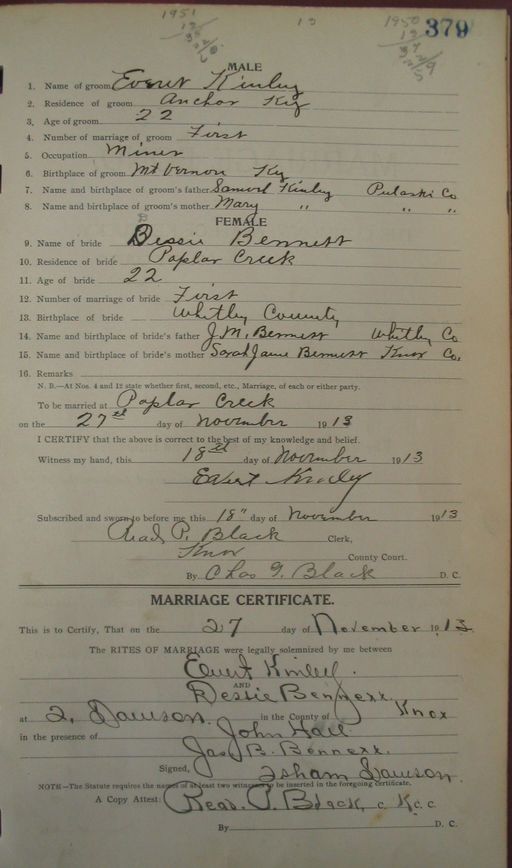 1951 13 1950 379
MALE
1. Name of groom Everet Kinley
2. Residence of groom Anchor Ky
3. Age of groom 22
4. Number of marriage of groom First
5. Occupation Miner
6. Birthplace of groom Mt Vernon Ky
7. Name and birthplace of groom's father Samuel Kinley Pulaski Co
8. Name and birthplace of groom's mother Mary " " "
FEMALE
B
9. Name of bride Bessie Bennett
10. Residence of bride Poplar Creek
11. Age of bride 22
12. Number of marriage of bride First
13. Birthplace of bride Whitley County
14. Name and birthplace of bride's father J. M. Bennett Whitley Co
15. Name and birthplace of bride's mother Sarah Jane Bennett Knox Co.
16. Remarks
N. B.—At Nos. 4 and 12 state whether first, second, etc., Marriage, of each or either party.
To be married at Poplar Creek
on the 27th day of November 1913
I CERTIFY that the above is correct to the best of my knowledge and belief.
Witness my hand, this 18th day of November 1913
Evert Kinley
Subscribed and sworn to before me this 18" day of November 1913
Read P. Black Clerk,
Knox County Court.
By Chas G. Black D. C.
MARRIAGE CERTIFICATE.
This is to Certify, That on the 27 day of November 1913
The RITES OF MARRIAGE were legally solemnized by me between
Evert Kinley.
AND
Bessie Bennett.
at I. Dawson. in the County of Knox
in the presence of John Hall
Jas. B. Bennett.
Signed, Isham Dawson.
NOTE—The Statute requires the names of at least two witnesses to be inserted in the foregoing certificate.
A Copy Attest: Read. P. Black, C. K. C. C
By D. C.